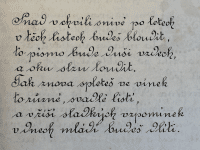 Snad v chvíli snivé po letech
v těch listech budeš bloudit,
to písmo bude duši vzdech,
a oku slzu loudit.
Pak znova spleteš ve vínek
to různé, svadlé listí,
a v říši sladkých vzpomínek
v dnech mládí budeš dlíti.